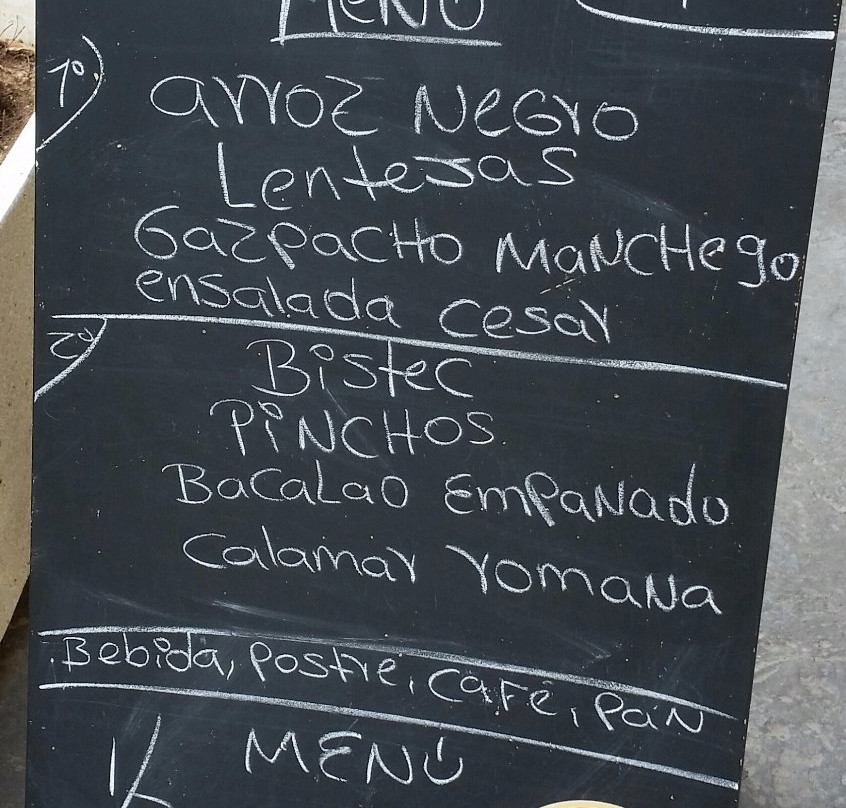 MENÚ
1º
arroz NeGro
Lentejas
GazpacHo MaNCHego
ensalada cesar
2º
Bistec
PiNCHOS
BacaLao EmPaNado
Calamar romaNa
Bebida, Postre, CaFé, PaN
1/2 MENÚ